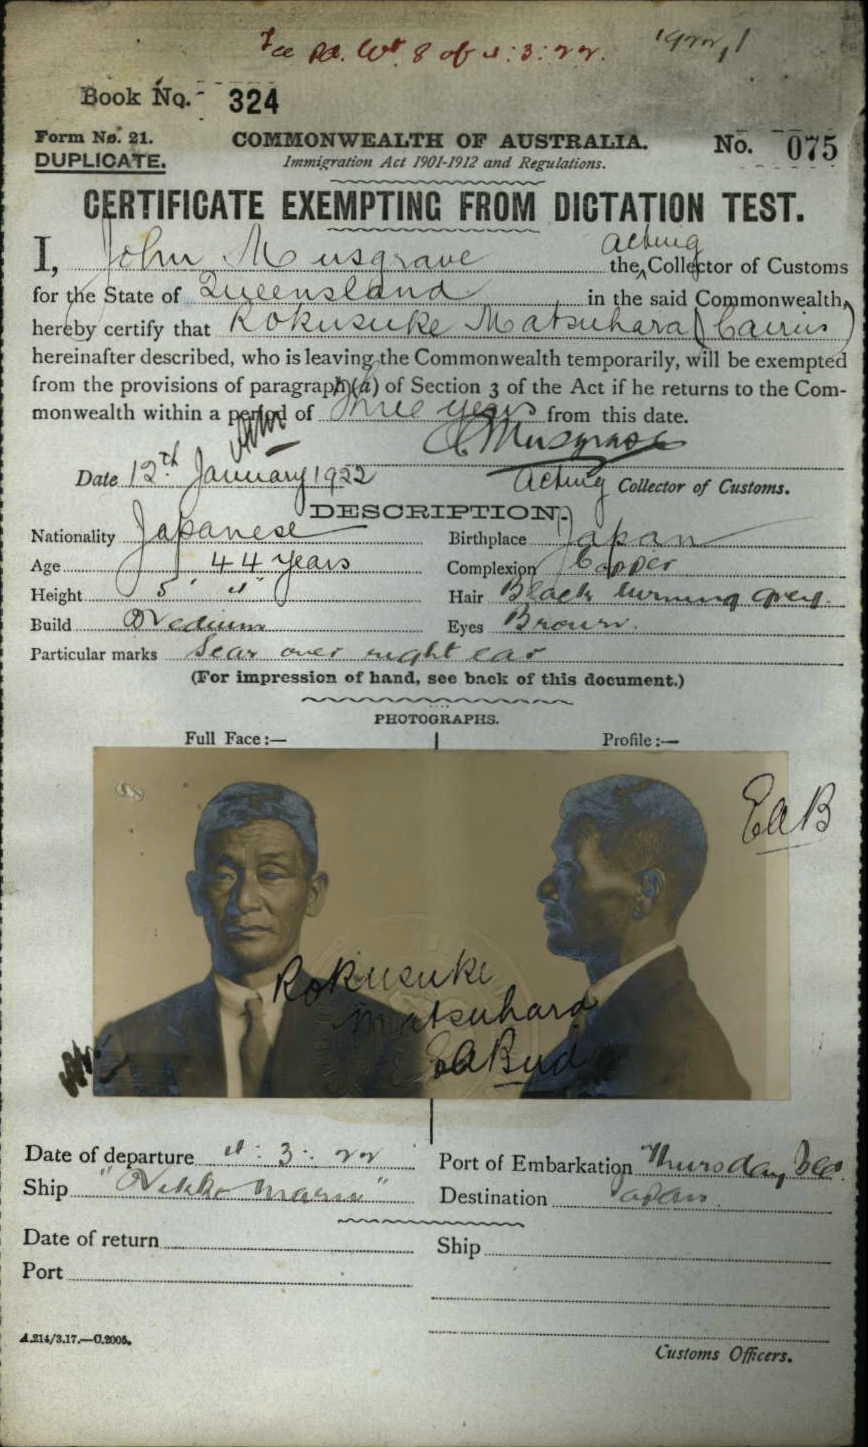 Book No. 324
Form No. 21.
DUPLICATE.
COMMONWEALTH OF AUSTRALIA.
Immigration Act 1901-1912 and Regulations.
No. 075
CERTIFICATE EXEMPTING FROM DICTATION TEST.
I, John Musgrave the acting Collector of Customs
for the State of Queensland in the said Commonwealth,
hereby certify that Rokusuke Matsuhara (Cairns)
hereinafter described, who is leaving the Commonwealth temporarily, will be exempted
from the provisions of paragraph (a) of Section 3 of the Act if he returns to the Com-
monwealth within a period of Three years from this date.
J Musgrave
Date 12th January 1922
Acting Collector of Customs.
DESCRIPTION.
Nationality Japanese
Birthplace Japan
Age 44 years
Complexion Copper
Height 5'
Hair Black turning grey.
Build Medium
Eyes Brown.
Particular marks Scar over right ear
(For impression of hand, see back of this document.)
PHOTOGRAPHS.
Full Face :—
Profile :—
EAB
Rokusuke
Matsuhara
Date of departure : 3 : 22
Port of Embarkation Thursday Isld.
Ship "Nikko Maru"
Destination Japan.
Date of return
Ship
Port
A.214/3.17.—C.2005.
Customs Officers.